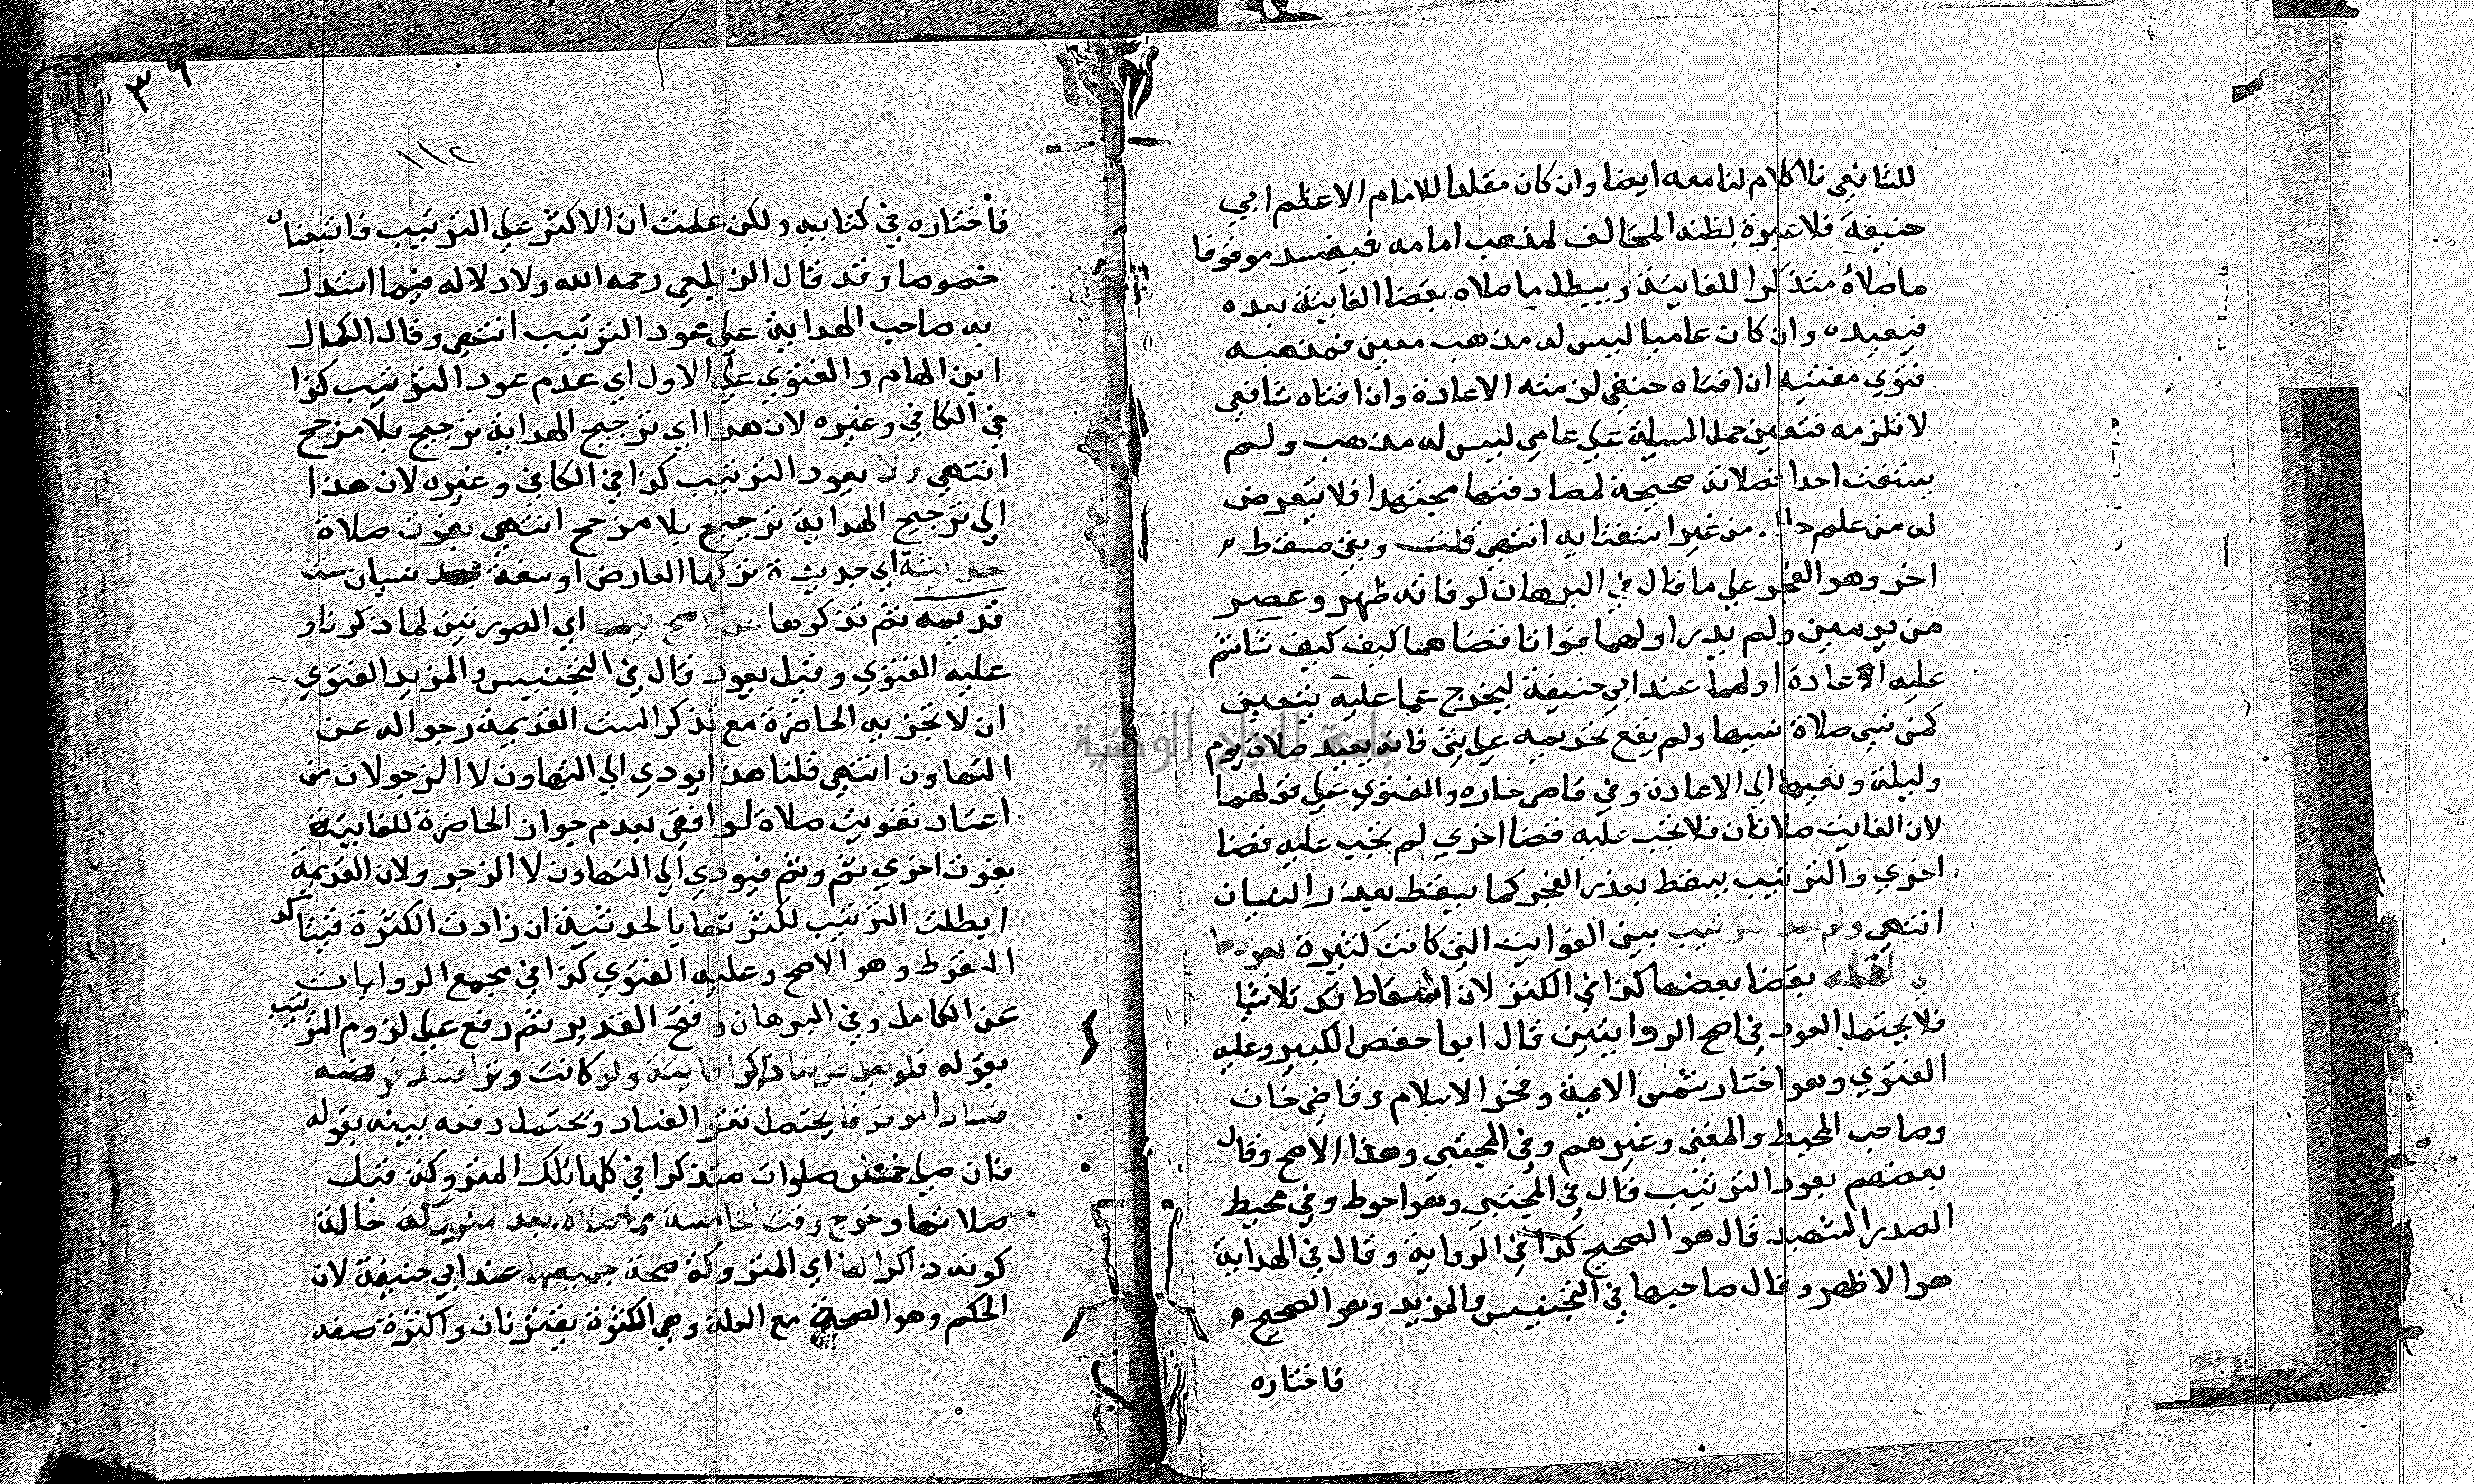 للشافعي فلا كلام لنا معه ايضا وان كان مقلدا للامام الاعظم ابي
حنيفة فلا عبرة بظنه المخالف لمذهب امامه فيفسد موقوفا
ما صلاه متذكرا للفايتة ويبطل ما صلاه بقضا الفايتة بعده
فيعيده وان كان عاميا ليس له مذهب معين فمذهبه
فتوي مفتيه ان افتاه حنفي لزمته الاعادة وان افتاه شافعي
لا تلزمه فتعين حمل المسيلة علي عامي ليس له مذهب ولم
يستفت احدا فصلاته صحيحة لمصادفتها مجتهدا فلا يتعرض
له من علم من غير استفتايه انتهي قلت وبقي مسقط
اخر وهو العجز علي ما قال في البرهان لو فاته ظهر وعصر
من يومين ولم يدر اولهما فواتا قضاهما كيف كيف شا ثم
عليه الاعادة اولهما عند ابي حنيفة ليخرج عما عليه بيقين
كمن نسي صلاة نسيها ولم يقع تحريه علي شي فانه يعيد صلاة يوم
وليلة ونفياها اي الاعادة وفي قاضي خان والفتوي علي قولهما
لان الفايت صلاتان فلا تجب عليه قضا اخري لم تجب عليه قضا
اخري والترتيب يسقط بعذر العجز كما يسقط بعذر النسيان
انتهي ولم يعد الترتيب بين الفوايت التي كانت كثيرة بعودها
الي القلة بقضا بعضها كذا في الكنز لان الساقط قد تلاشا
فلا يحتمل العود في اصح الروايتين قال ابوا حفص الكبير وعليه
الفتوي وهو اختار شمس الايمة وفخر الاسلام وقاضي خان
وصاحب المحيط والمغني وغيرهم وفي المجتبي وهذا الاصح وقال
بعضهم يعود الترتيب قال في المجتبي وهو احوط وفي محيط
الصدر الشهيد قال هو الصحيح كذا في الرواية وقال في الهداية
هو الاظهر وقال صاحبها في التجنيس والمزيد وهو الصحيح
فاختاره
٣٩
١١٢
فاختاره في كتابيه ولكن علمت ان الاكثر علي الترتيب فاتبعنا
خصوصا وقد قال الزيلعي رحمه الله ولا دلاله فيما استدل
به صاحب الهداية علي عود الترتيب انتهي وقال الكمال
ابن الهمام والفتوي علي الاول اي عدم عود الترتيب كذا
في الكافي وغيره لان هذا اي ترجيح الهداية ترجيح بلا مرجح
انتهي ولا يعود الترتيب كذا في الكافي وغيره لان هذا
الي ترجيح الهداية ترجيح بلا مرجح انتهي بفوت صلاة
حديثة اي جديدة تركها العارض اوسفه بعد نسيان ست
قديمه ثم تذكرها علي الاصح فيهما اي الصورتين لما ذكرنا و
عليه الفتوي وقيل يعود قال في التجنيس والمزيد الفتوي
ان لا تجزيه الحاضرة مع تذكر الست القديمة زجرا له عن
التهاون انتهي قلنا هذا يودي الي التهاون لا الزجر لان من
اعتاد تفويت صلاة لو افتي بعدم جواز الحاضرة للفايتة
يفوت اخري ثم وثم فيودي الي التهاون لا الزجر ولان القديمة
ابطلت الترتيب لكثرتها بالحديثة ان زادت الكثرة فيتاكد
السقوط وهو الاصح وعليه الفتوي كذا في مجمع الروايات
عن الكامل وفي البرهان وفتح القدير ثم رفع علي لزوم الترتيب
بقوله فلو صلي فرضا ذاكرا فايتة ولو كانت وترا فسد فرضه
فسادا موقوفا يحتمل تقرر الفساد وتحتمل رفعه بينه بقوله
فان صلي خمس صلوات متذكرا في كلها تلك المتروكة قبل
صلاتها وخرج وقت الخامسة مما صلاه بعد المتروكة حالة
كونه ذاكرا لها اي المتروكة صحة جميعها عند ابي حنيفة لان
الحكم وهو الصحة مع العلة وهي الكثرة يقترنان والكثرة صفه
جامعة النجاح الوطنية